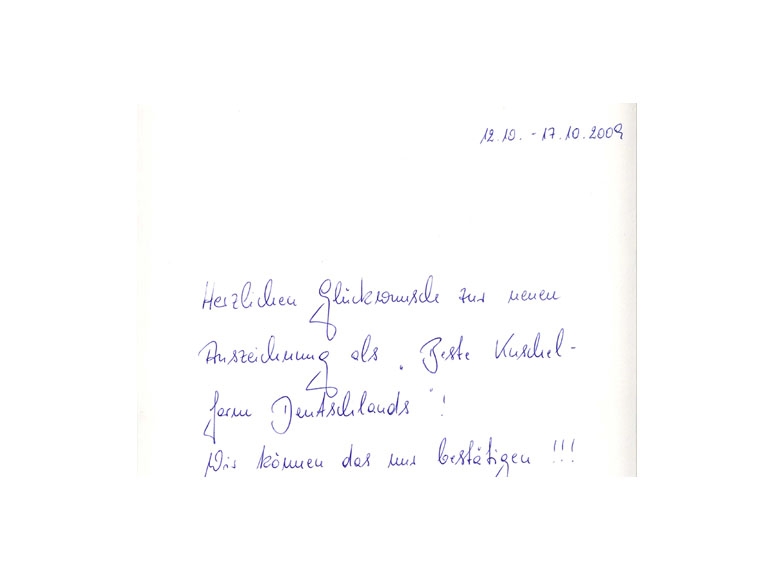 12.10. - 17.10.2009
Herzlichen Glückwunsch zur neuen
Auszeichnung als „Beste Kuschel-
farm Deutschlands"!
Wir können das nur bestätigen !!!